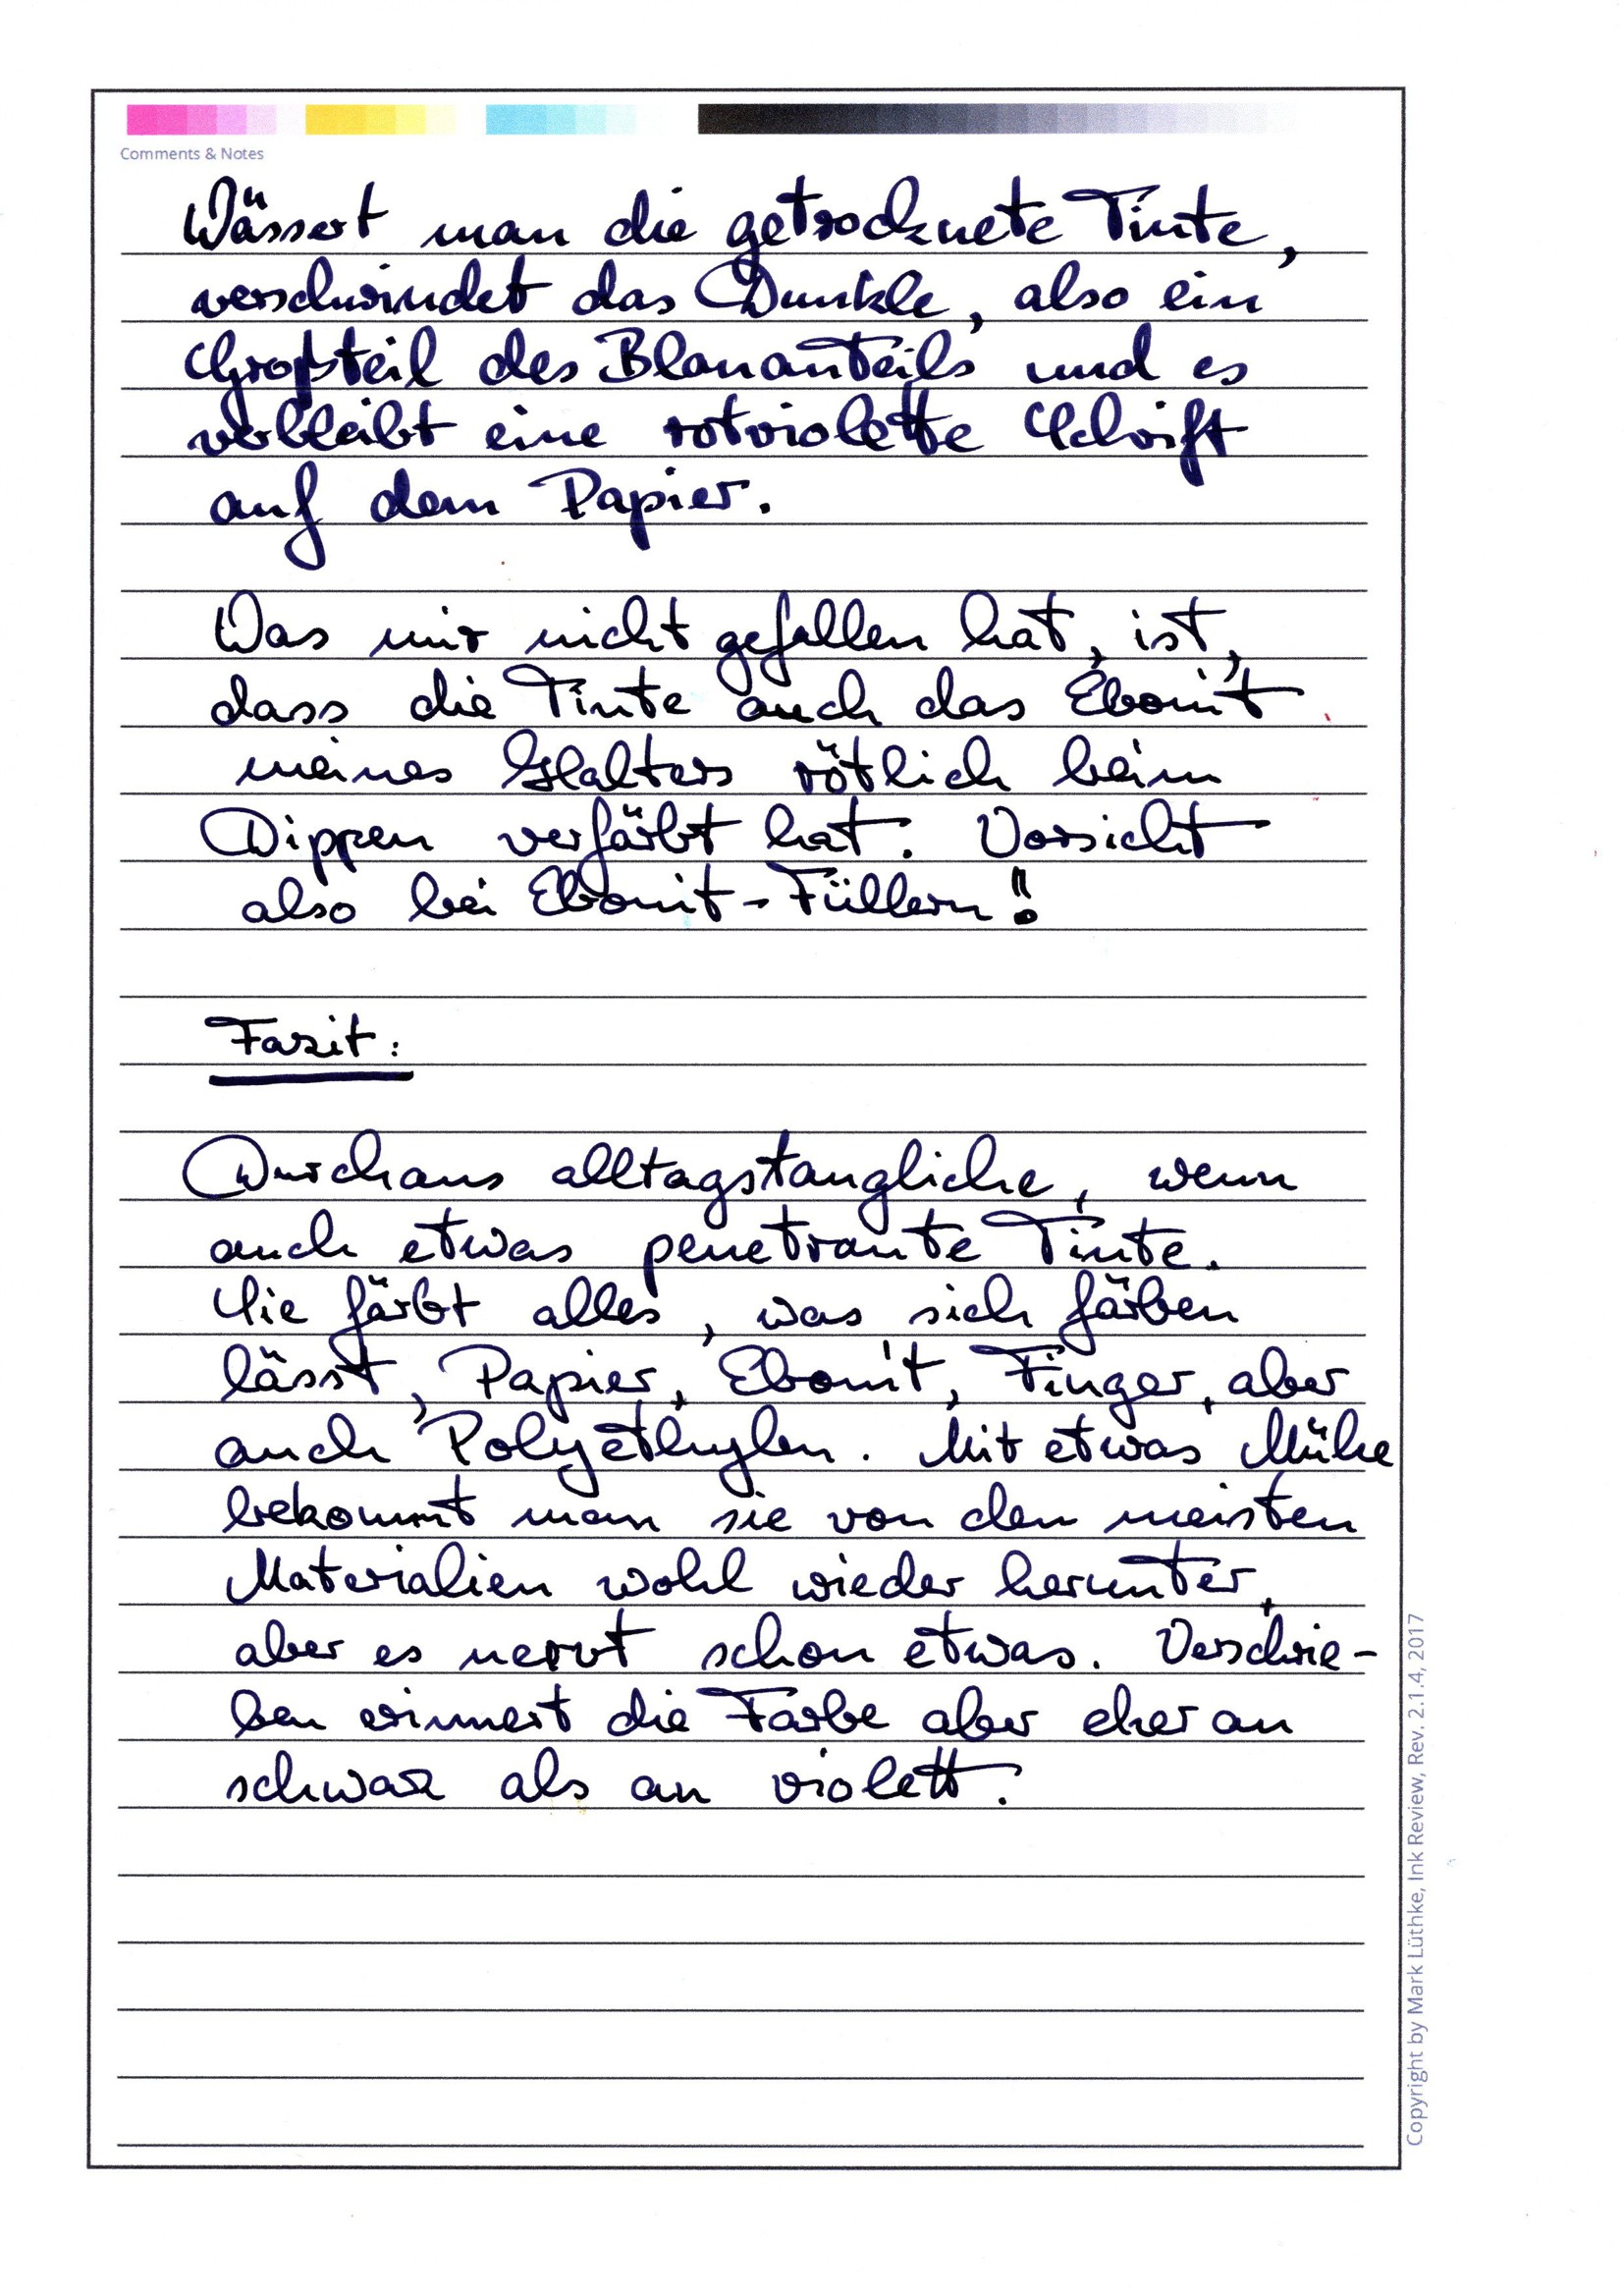 Comments & Notes
Wässert man die getrocknete Tinte,
verschwindet das Dunkle, also ein
Großteil des Blauanteils und es
verbleibt eine rotviolette Schrift
auf dem Papier.
Was mir nicht gefallen hat, ist,
dass die Tinte auch das Ebonit
meines Halters rötlich beim
Dippen verfärbt hat. Vorsicht
also bei Ebonit-Füllern!!
Fazit:
Durchaus alltagstaugliche, wenn
auch etwas penetrante Tinte.
Sie färbt alles, was sich färben
lässt, Papier, Ebonit, Finger, aber
auch Polyethylen. Mit etwas Mühe
bekommt man sie von den meisten
Materialien wohl wieder herunter,
aber es nervt schon etwas. Verschrie-
ben erinnert die Farbe aber eher an
schwarz als an violett.
Copyright by Mark Lüthke, Ink Review, Rev. 2.1.4, 2017